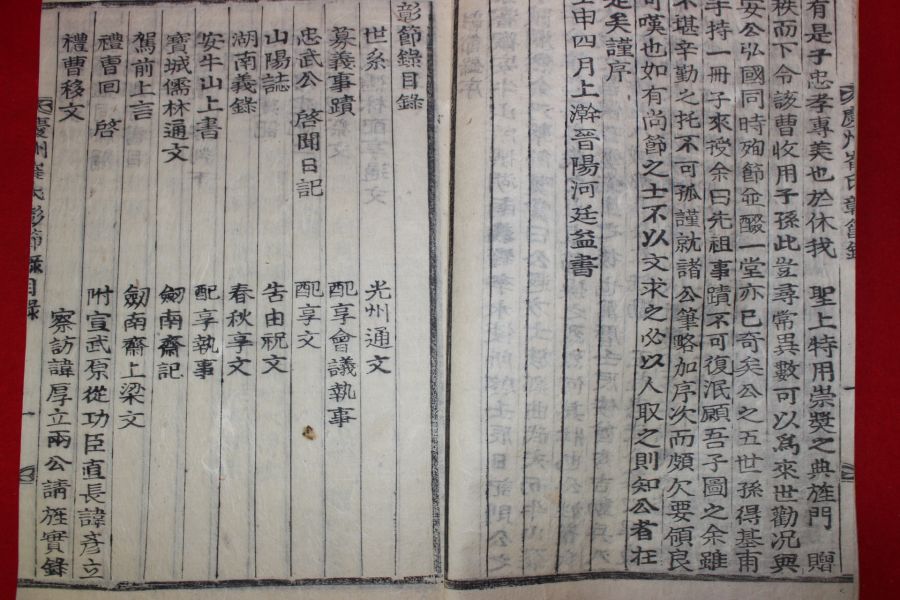 有是子忠孝專美也於休我 聖上特用崇奬之典旌門 贈
秩而下令該曹收用子孫此豈尋常異數可以爲來世勸况興
安公弘國同時殉節並醊一堂亦已奇矣公之五世孫得基甫
手持一冊子來授余曰先祖事蹟不可復泯顧吾子圖之余雖
不堪辛勤之托不可孤謹就諸公筆略加序次而頗欠要領良
可嘆也如有尚節之士不以文求之必以人取之則知公者在
是矣謹序
壬申四月上澣晉陽河廷益書
彰節錄目錄
世系
光州通文
募義事蹟
配享會議執事
忠武公 啓聞日記
配享文
山陽誌
告由祝文
湖南義錄
春秋享文
安牛山上書
配享執事
寶城儒林通文
劒南齋記
駕前上言
劒南齋上梁文
禮曹回 啓
附宣武原從功臣直長諱彥立
禮曹移文
察訪諱厚立兩公請旌實錄
慶州崔氏彰節錄目錄 一
慶州崔氏彰節錄